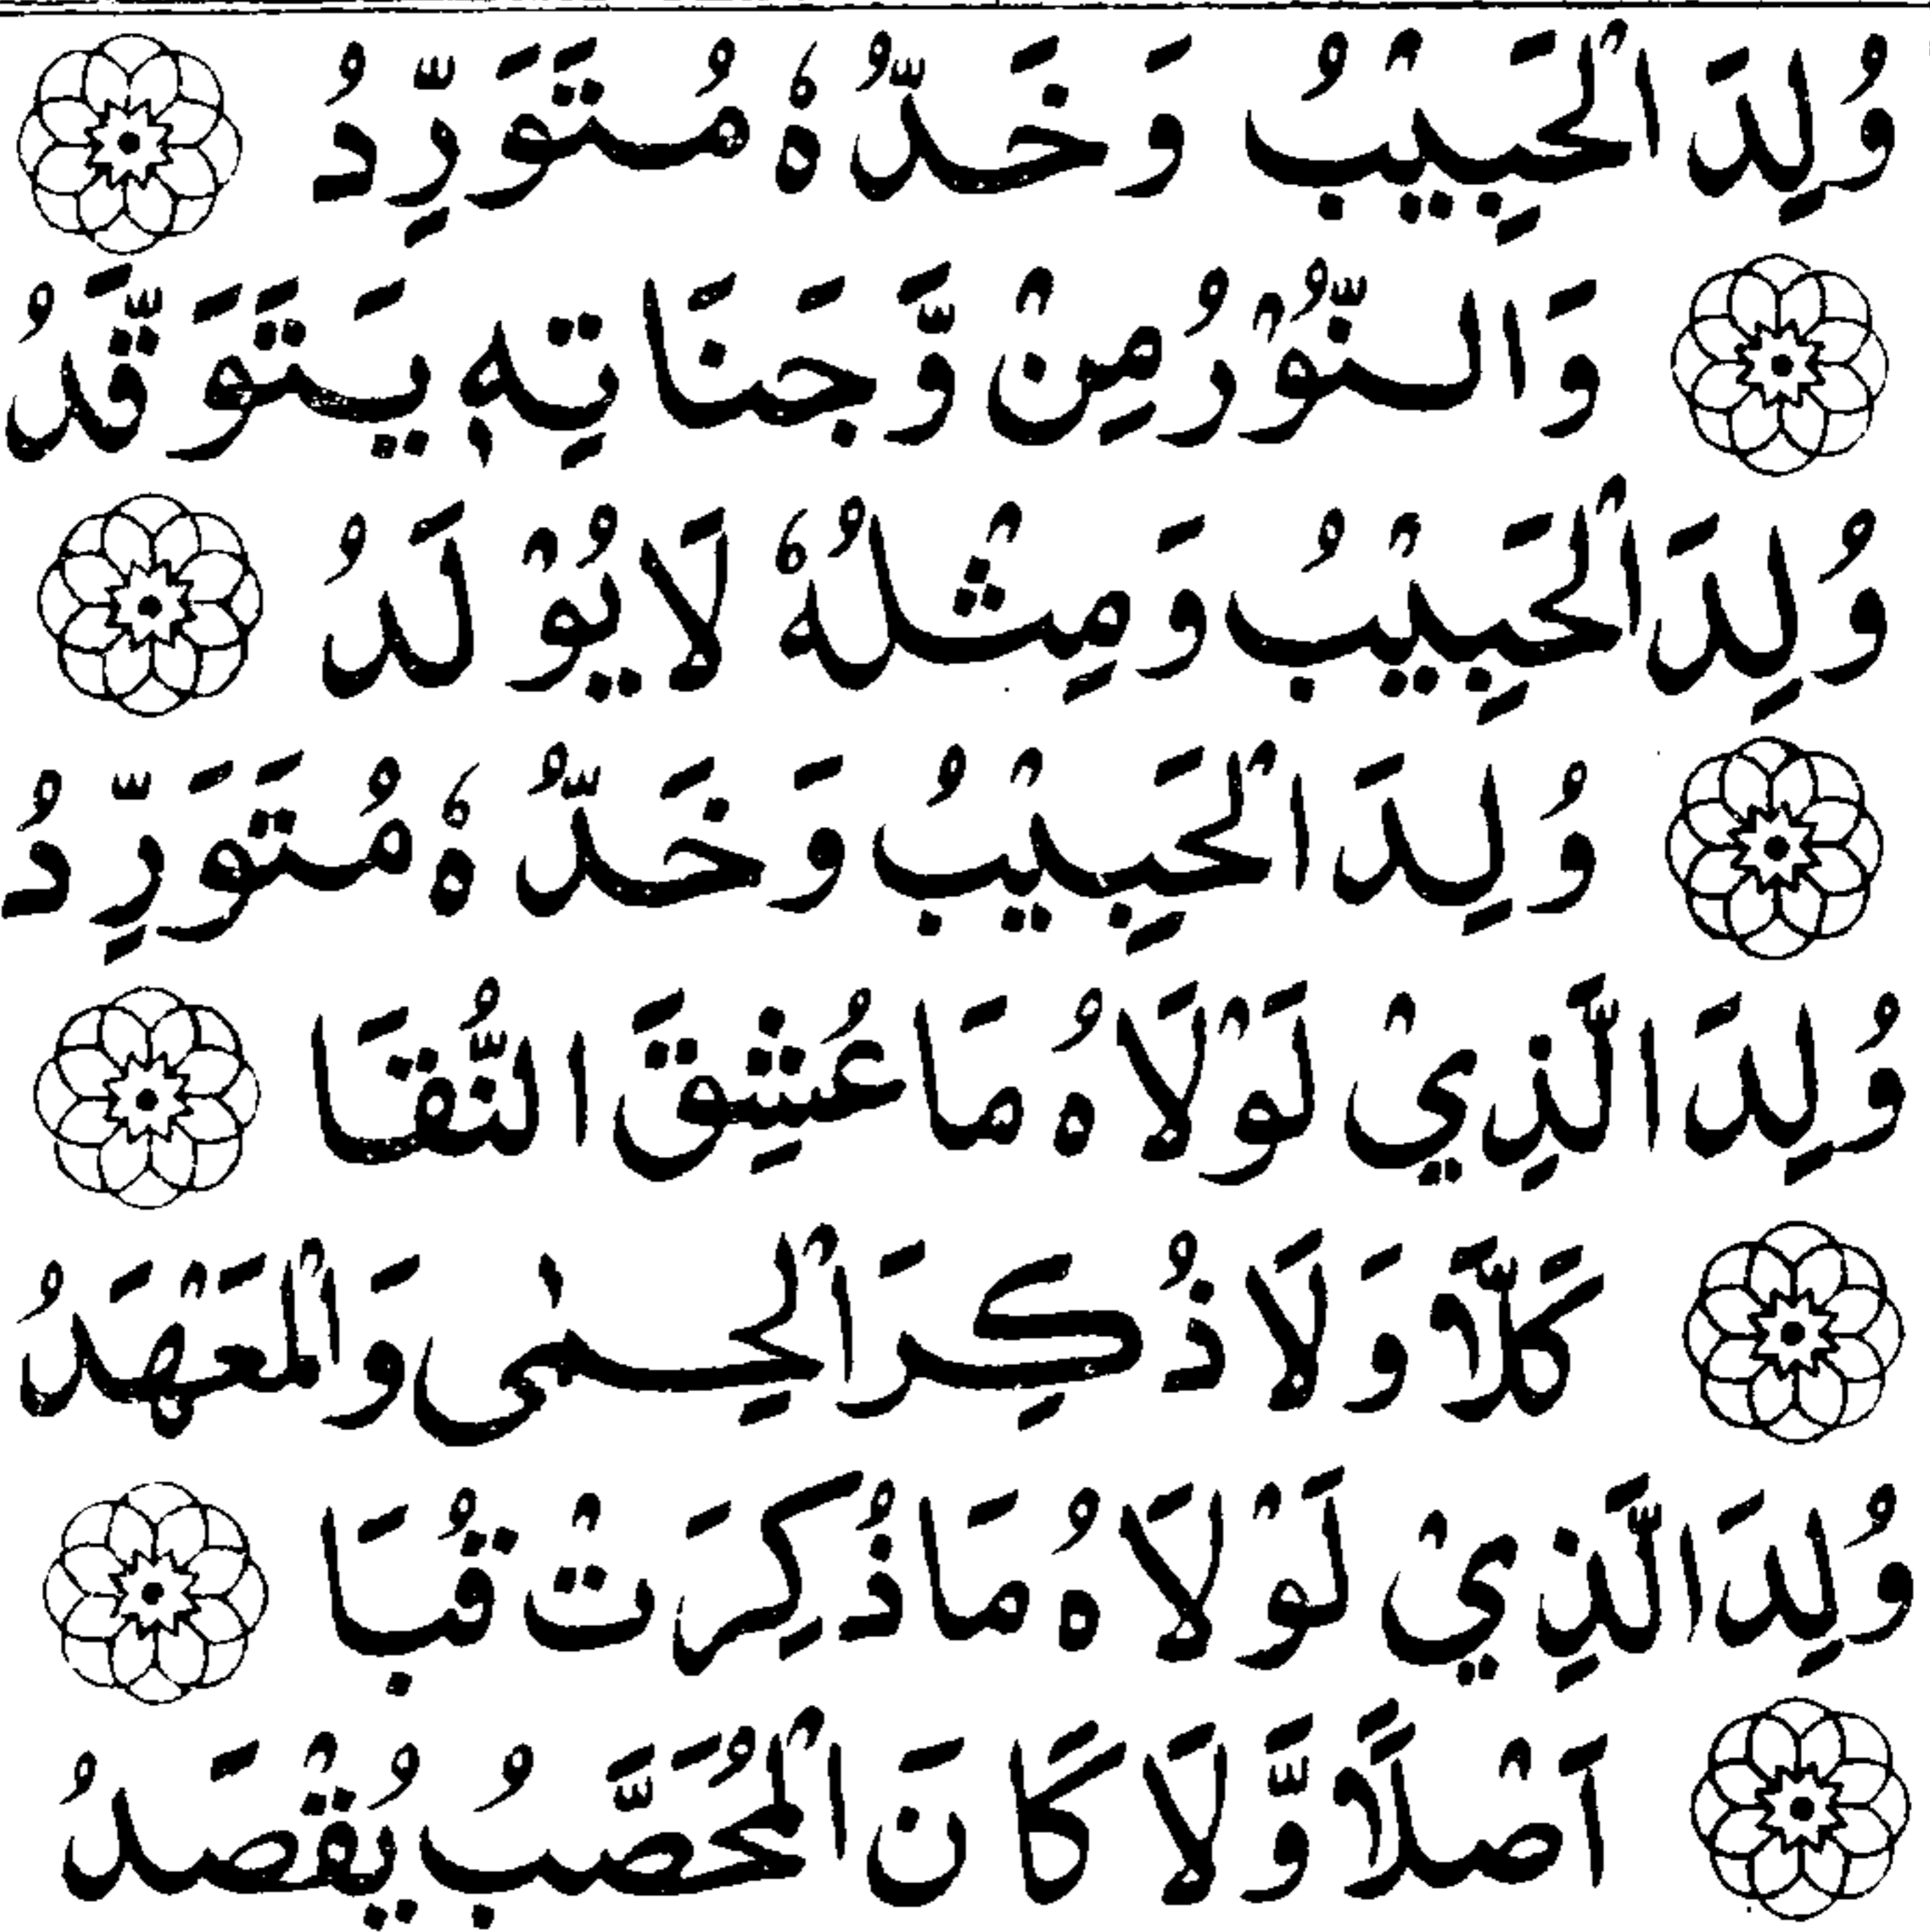 وُلِدَ الْحَبِيْبُ وَخَدُّهٗ مُتَوَرِّدُ
وَالنُّوْرُ مِنْ وَّجَنَاتِهٖ يَتَوَقَّدُ
وُلِدَ الْحَبِيْبُ وَمِثْلُهٗ لَا يُوْلَدُ
وُلِدَ الْحَبِيْبُ وَخَدُّهٗ مُتَوَرِّدُ
وُلِدَ الَّذِيْ لَوْلَاهُ مَا عُشِقَ النُّقَا
كَلَّا وَلَا ذُكِرَ الْحِمٰى وَالْمَعْهَدُ
وُلِدَ الَّذِيْ لَوْلَاهُ مَا ذُكِرَتْ قُبَا
اَصْلًا وَّلَا كَانَ الْمُحَصَّبُ يُقْصَدُ